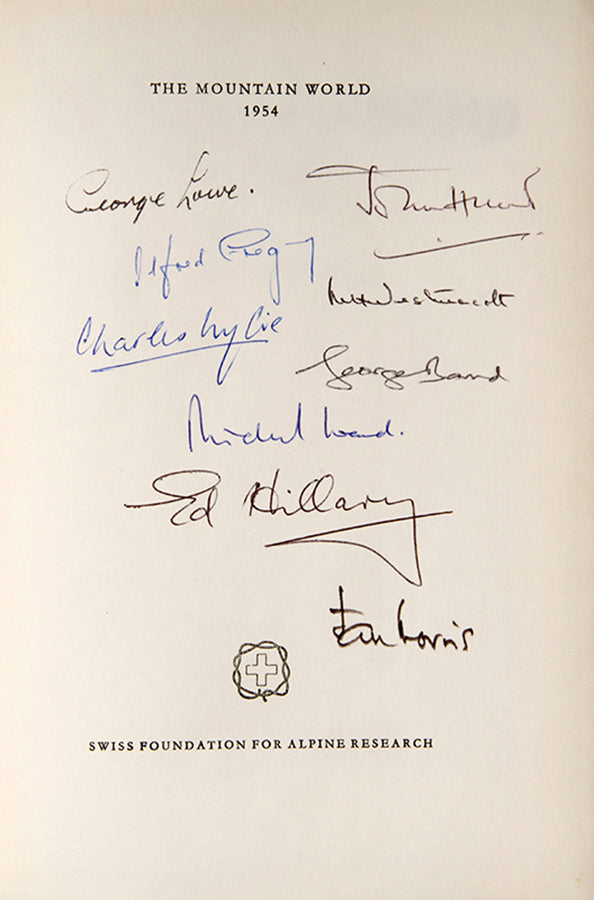 THE MOUNTAIN WORLD
1954
George Lowe.
John Hunt
Alfred Greg
MHWestmacott
Charles Wylie
George Band
Michael Ward.
Ed Hillary
Jan Morris
SWISS FOUNDATION FOR ALPINE RESEARCH